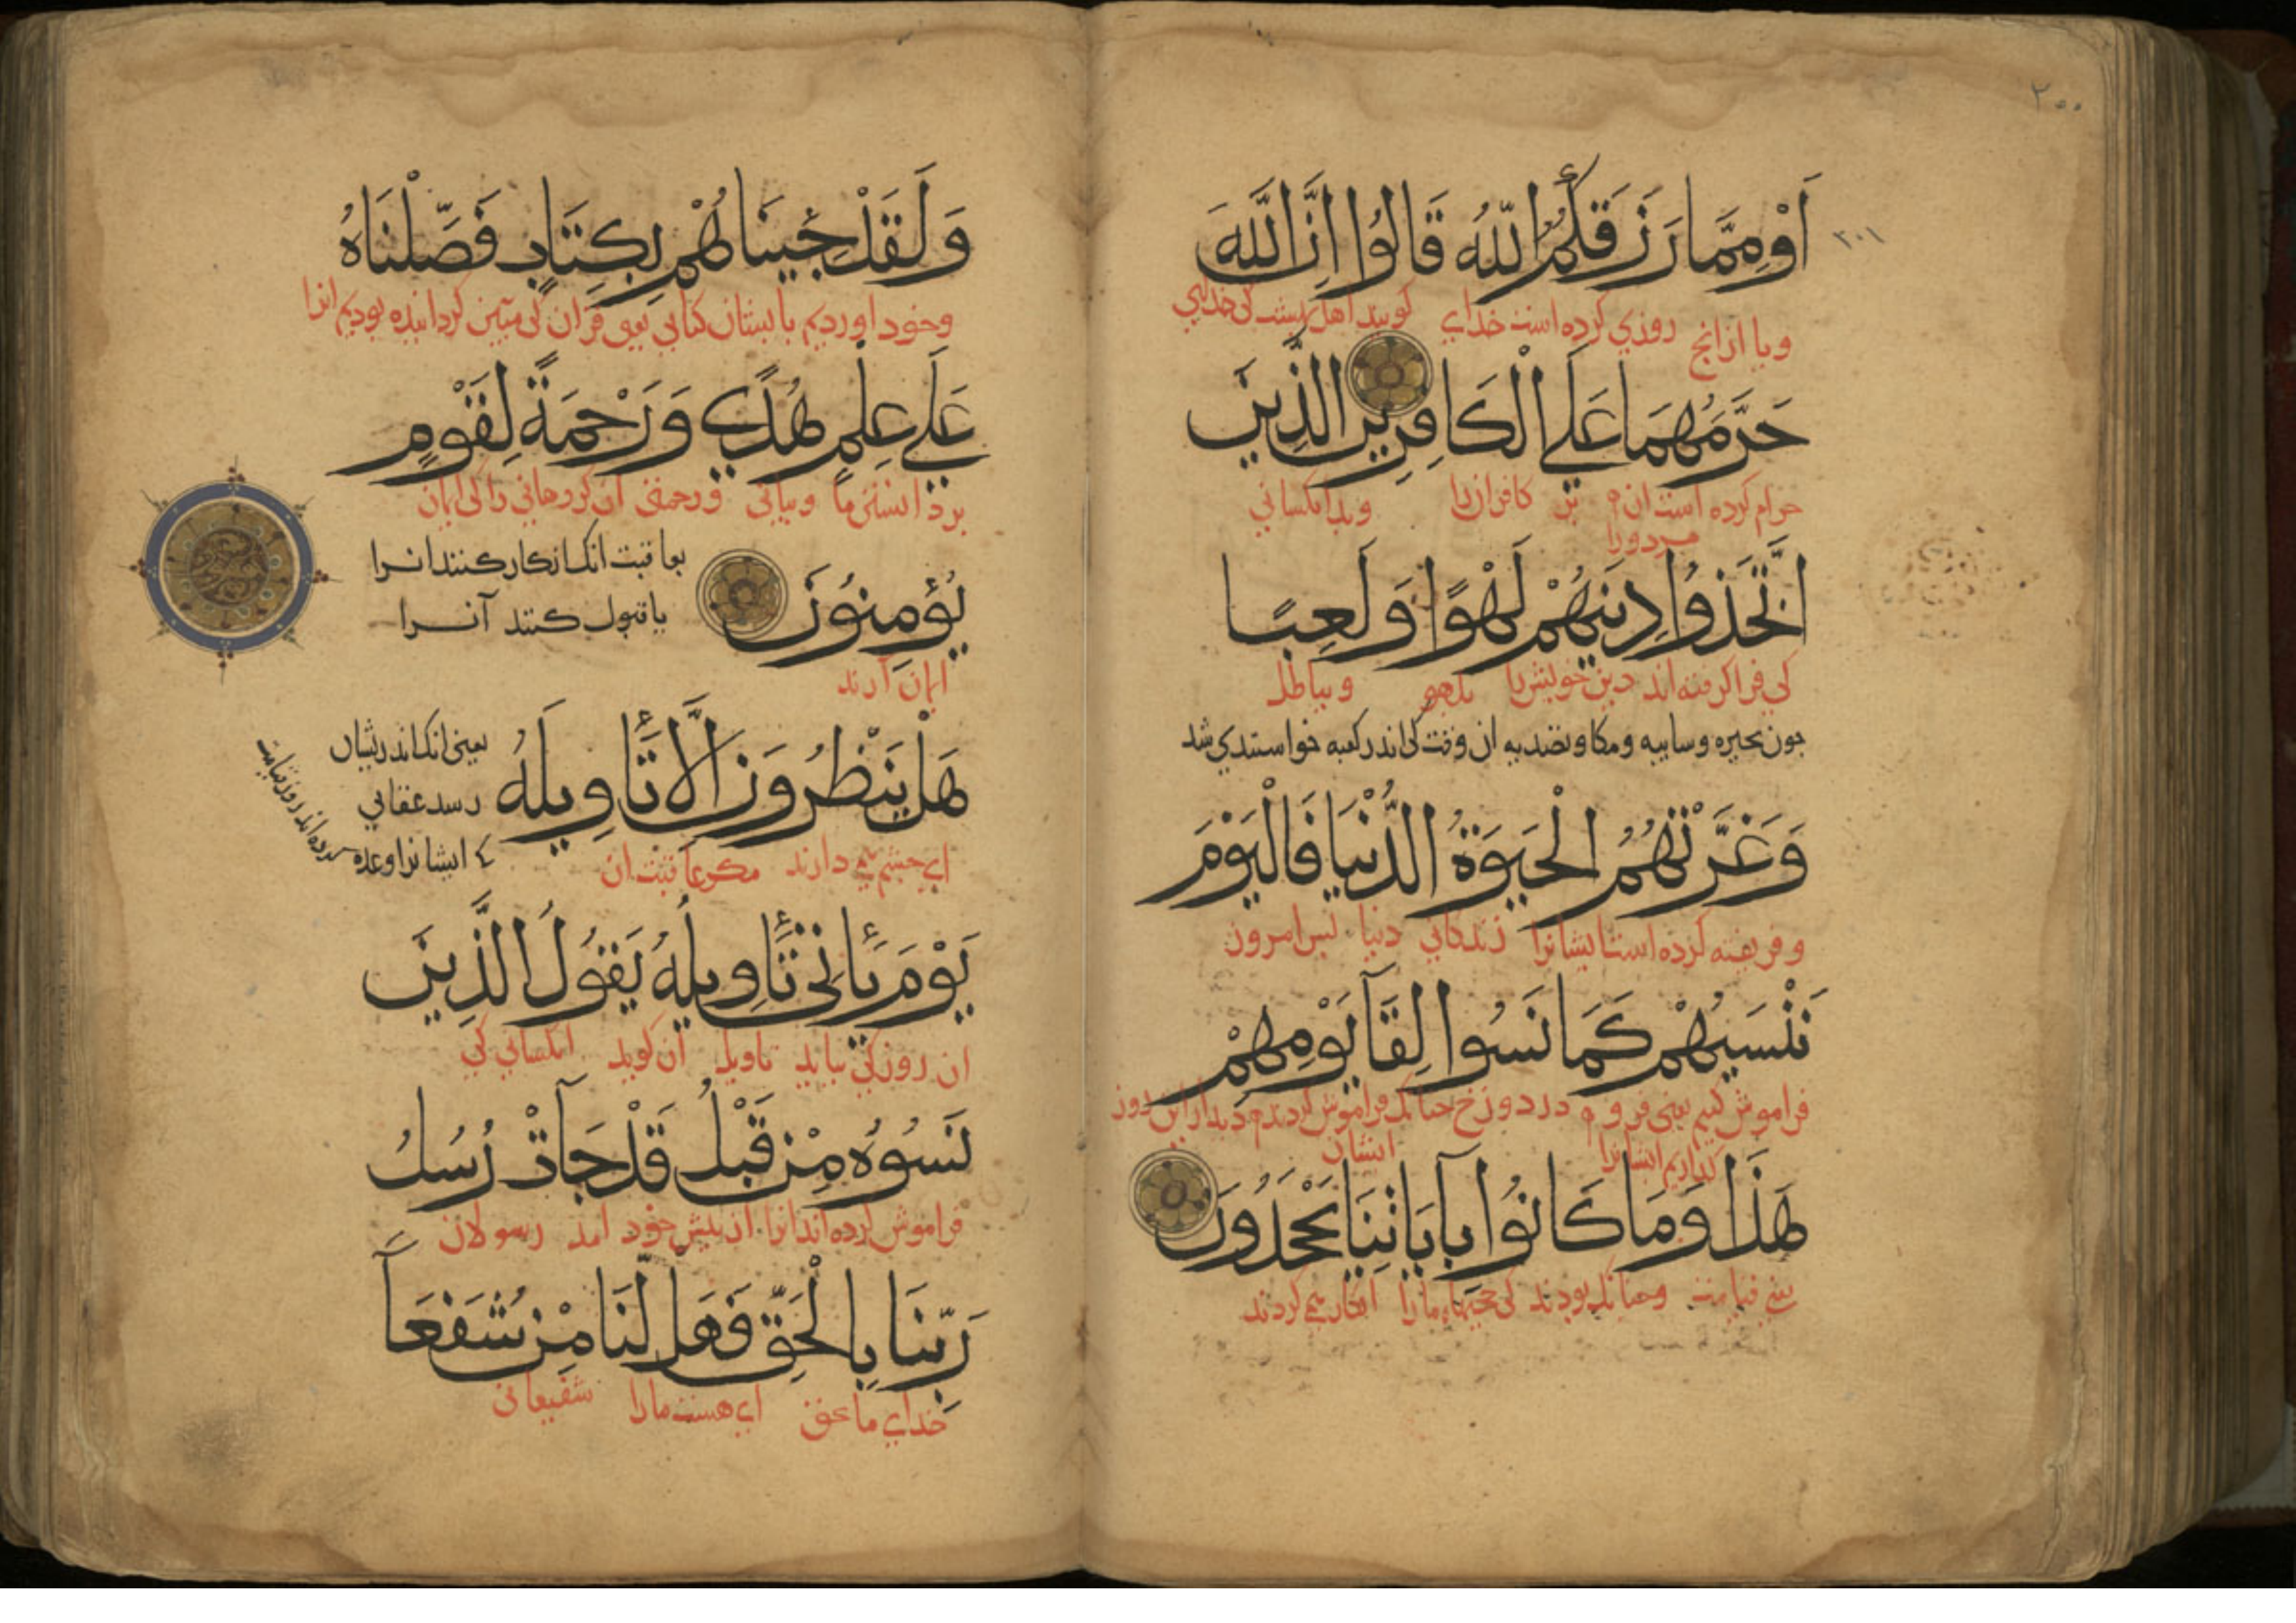 ۲۰۰
۲۰۱
اَوْ مِمَّا رَزَقَكُمُ اللّٰهُ قَالُوا اِنَّ اللّٰهَ
ویا ازانچ روزی کرده است خدای کویند اهل بهشت کی خدای
حَرَّمَهُمَا عَلَى الْكَافِرِينَ الَّذِينَ
حرام کرده است ان بر کافران را
هردورا
اتَّخَذُوا دِينَهُمْ لَهْوًا وَلَعِبًا
کی فرا کرفته اند دین خویش را بلهو و بباطل
جون بحیره وسایبه ومکا وتصدیه ان وقت کی اندر کعبه خواستندی شد
وَغَرَّتْهُمُ الْحَيَوةُ الدُّنْيَا فَالْيَوْمَ
وفریفته کرده است ایشانرا زندکانی دنیا بس امروز
نَنْسَيهُمْ كَمَا نَسُوا لِقَآ يَوْمِهِمْ
فراموش کنیم یعنی فرو در دوزخ جنانک فراموش کردند دیدار این روز
کذاریم ایشانرا ایشان
هَذَا وَمَا كَانُوا بِآيَاتِنَا يَجْحَدُونَ
یعنی قیامت وجنانک بودند کی حجتهاء مارا انکار می کردند
وَلَقَدْ جِئْنَاهُمْ بِكِتَابٍ فَصَّلْنَاهُ
وخود اوردیم بایشان کتابی یعنی قران کی مبین کردانیده بودیم انرا
عَلَى عِلْمٍ هُدًى وَرَحْمَةً لِقَوْمٍ
بر دانستن ما وبیانی ورحمتی ان کروهانی را کی ایمان
يُؤْمِنُونَ
بعاقبت انک انکار کنند انرا
یا قبول کنند آنرا
ایمان آرند
هَلْ يَنْظُرُونَ اِلَّا تَأْوِيلَهُ
یعنی انک اندر ایشان
رسد عقابی
ک ایشانرا وعده
کرده اند روز قیامت
ای جشم می دارند مکر عاقبت ان
يَوْمَ يَأْتِي تَأْوِيلُهُ يَقُولُ الَّذِينَ
ان روز کی بیاید تاویل ان کوید انکسانی کی
نَسُوهُ مِنْ قَبْلُ قَدْ جَآتْ رُسُلُ
فراموش کرده اند انرا از بیش خود امد رسولان
رَبِّنَا بِالْحَقِّ فَهَلْ لَنَا مِنْ شُفَعَآ
خدای ما بحق ای هست مارا شفیعانی